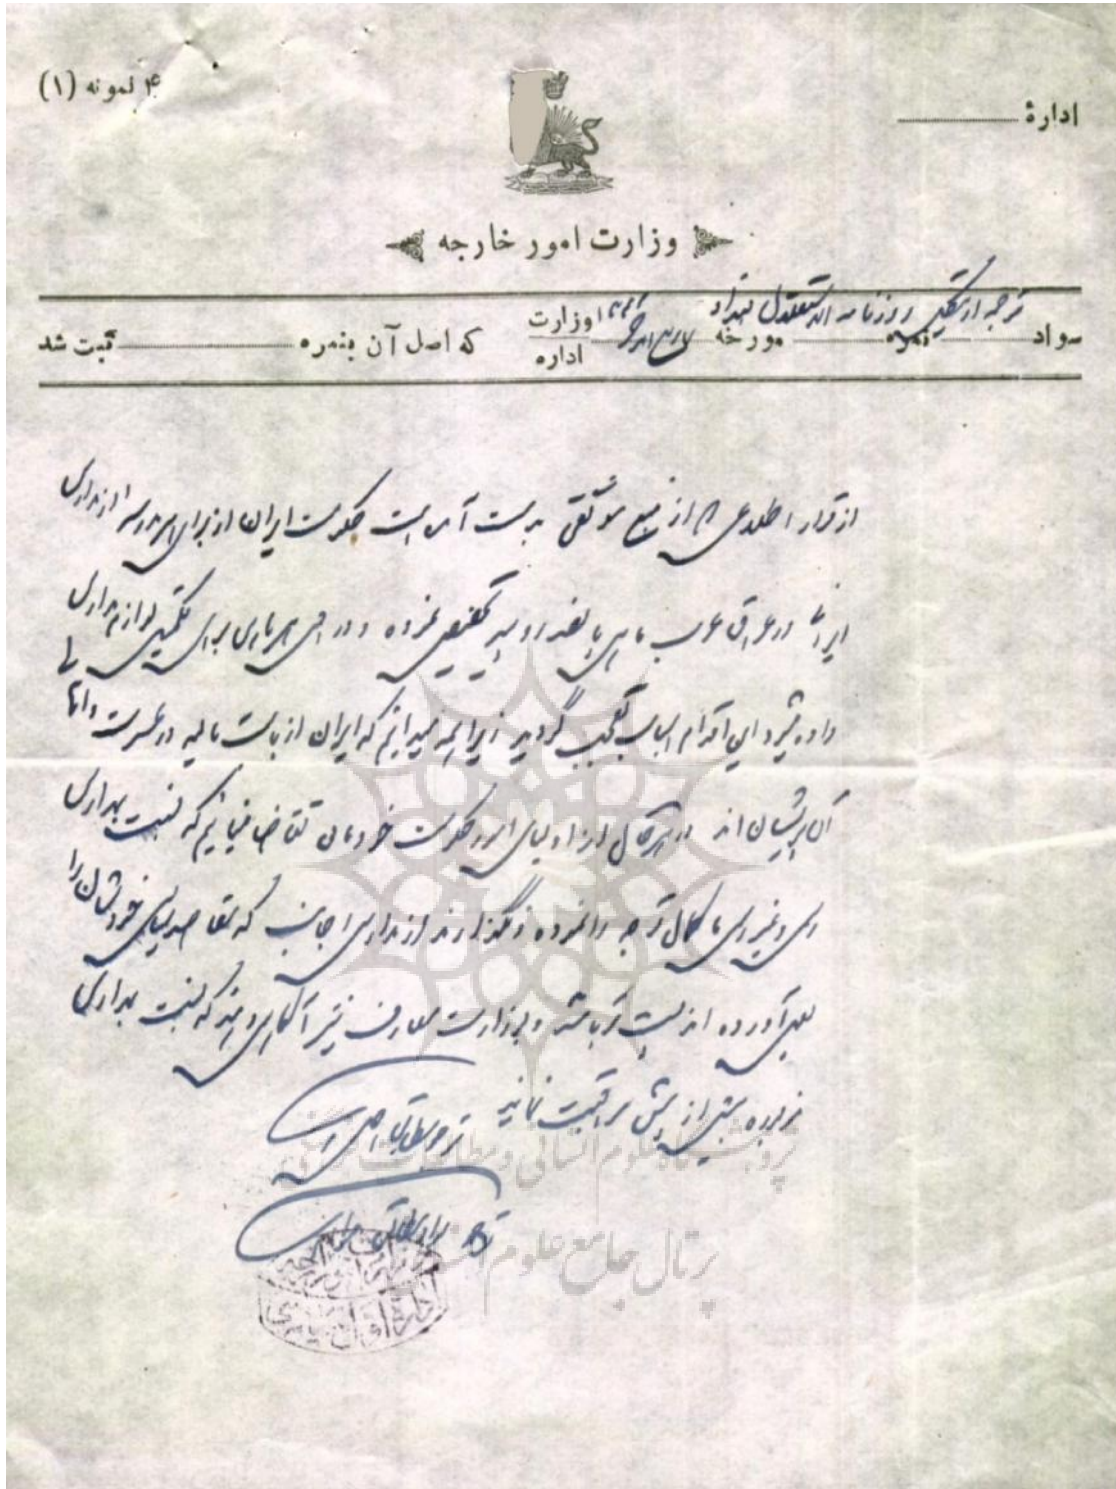 ۴ نمونه (۱)
ادارهٔ
وزارت امور خارجه
ترجمه از روزنامه الاستقلال بغداد
سواد نمره مورخه وزارت اداره که اصل آن بنمره ثبت شد
از قرار اطلاعی که از منبع موثقی بدست آمده است حکومت ایران از برای هر مدرسه از مدارس
ایرانی در عراق عرب ماهی پانصد روپیه تخصیص نموده و در برای تکمیل لوازم مدارس
داده شد و این اقدام اسباب تعجب گردید زیرا همه میدانیم که ایران از بابت مالیه در عسرت و اتباع
آن پریشان‌اند در هر حال از اولیای امور حکومت خودمان تقاضا مینمائیم که نسبت بمدارس
کمال توجه را نموده و نگذارند از مدارس اجانب که مقاصد سیاسی خودشان را
بعمل آورده اند پست تر باشند و بوزارت معارف نیز آگاهی میدهند که نسبت بمدارس
مزبوره بیش از پیش مراقبت نمایند
سواد مطابق اصل است
پژوهشگاه علوم انسانی و مطالعات فرهنگی
سواد مطابق
پرتال جامع علوم انسانی